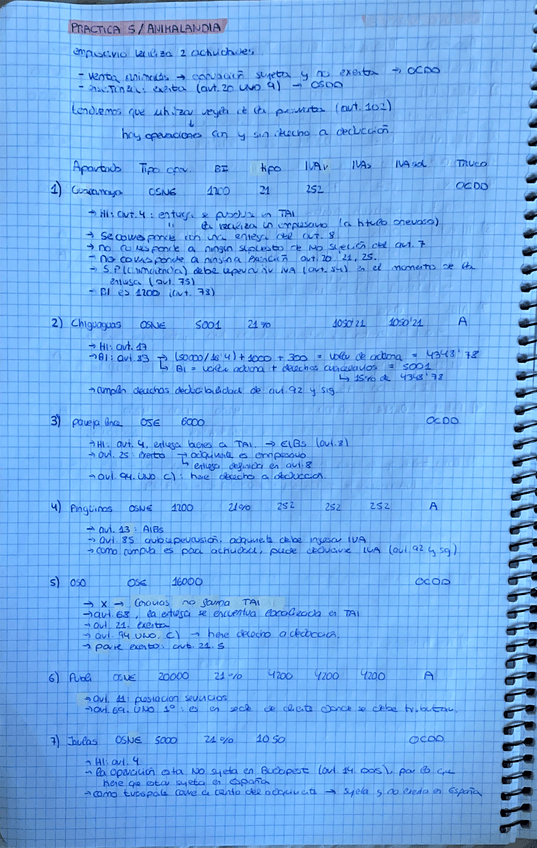 PRACTICA 5 / ANIMALANDIA
empresario realiza 2 actividades
- venta animales → operación sujeta y no exenta → OCDD
- exenta (art. 20 UNO. 9) → OSDD
tendremos que utilizar regla de la prorrata (art. 102)
↓
hay operaciones con y sin derecho a deducción.
Apartado Tipo oper. BI tipo IVAr IVAs IVAsd Truco
1) OSNE 1200 21 252 OCDD
→ HI: art. 4: entrega se produce en TAI
" la realiza un empresario (a título oneroso)
→ Se corresponde con una entrega del art. 8
→ no corresponde a ningún supuesto de NO sujeción del art. 7
- no corresponde a ninguna exención art. 20, 21, 25.
- S.P. debe repercutir IVA en el momento de la
entrega (art. 75)
- BI es 1200 (art. 78)
2) Chiguaguas OSNE 5001 21% 1050'21 1050'21 A
→ HI: art. 17
→ BI: art. 83 → (5000/1'4) + 1000 + 300 = valor de aduana =
BI = valor aduana + derechos arancelarios = 5001
↳ 15% de
→ cumplen derechos deducibilidad de art. 92 y sig.
3) pareja OSE 6000 OCDD
→ HI: art. 4. entrega bienes a TAI. → EIBs (art. 8)
→ art. 25 exento → adquirente es empresario
↳ entrega definida en art. 8
→ art. 94. UNO c): tiene derecho a deducción.
4) Pingüinos OSNE 1200 21% 252 252 252 A
→ art. 13: AIBs
→ art. 85 autorepercusión, adquirente debe ingresar IVA
→ como compra es para actividad, puede deducirse IVA (art. 92 y sg)
5) OSO OSE 16000 OCDD
→ X → Canarias no forma TAI
→ art. 68, la entrega se encuentra localizada en TAI
→ art. 21: exenta
→ art. 94 UNO. C) → tiene derecho a deducción.
→ exento: art. 21. 5
6) Publi OSNE 20000 21% 4200 4200 4200 A
→ art. 11: prestación servicios
→ art. 69. UNO 1º: es en sede de cliente donde se debe tributar.
7) Jaulas OSNE 5000 21% 1050 OCDD
→ HI: art. 4
- la operación está NO sujeta en Budapest (art. 14 DOS), por lo que
tiene que estar sujeta en España
→ como corre a cuenta del adquirente → sujeta y no exenta en España